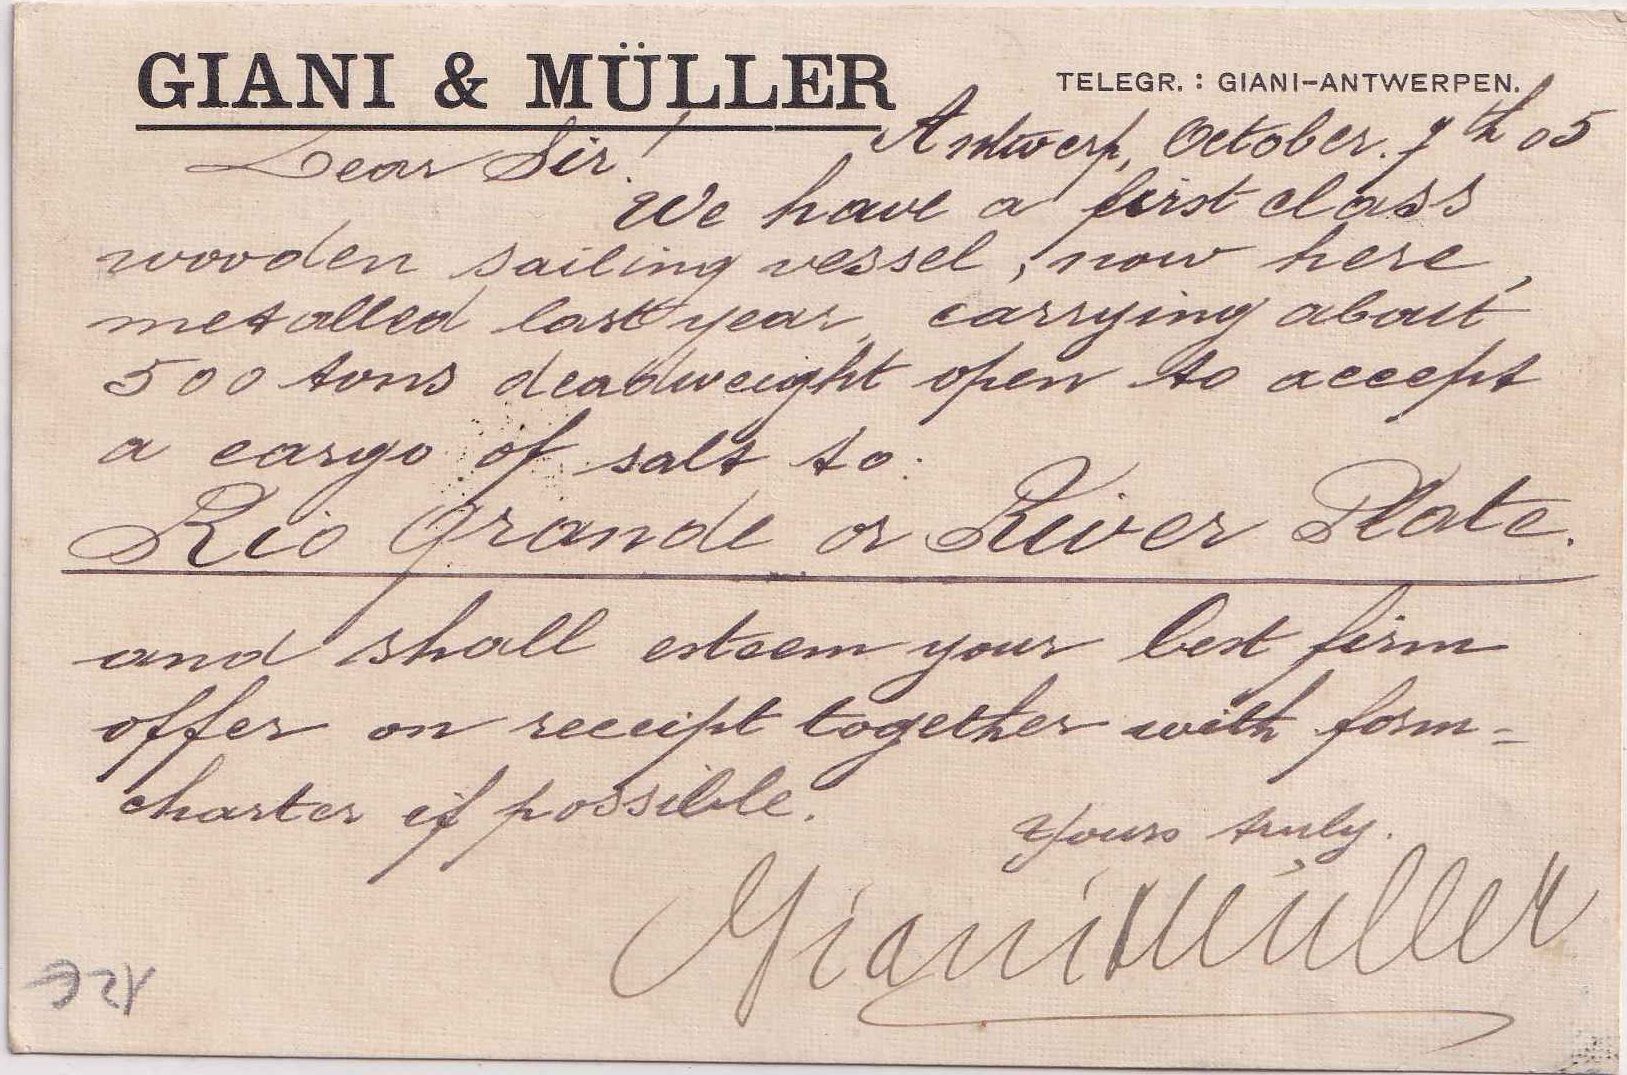 GIANI & MÜLLER
TELEGR. : GIANI-ANTWERPEN.
Antwerp, October. 9th 05
Dear Sir!
We have a first class
wooden sailing vessel, now here,
metalled last year, carrying about
500 tons deadweight open to accept
a cargo of salt to:
Rio Grande or River Plate.
and shall esteem your best firm
offer on receipt together with form=
charter if possible.
Yours truly.
Giani Müller